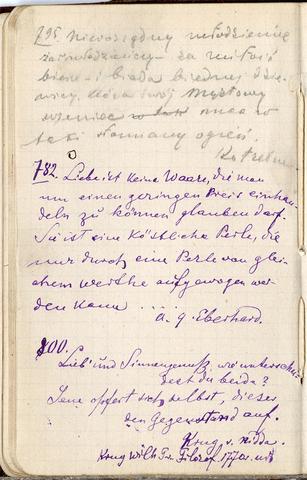 795. Nierozsądny młodzieniec
za miłość
bierze i biada biednej dzie-
wicy, która swój myrtowy
wieniec w tak
taki słomiany ogień.
Kotzebue
782. Liebe ist keine Waare, die man
um einen geringen Preis einhan-
deln zu können glauben darf.
Sie ist eine köstliche Perle, die
nur durch eine Perle von glei-
chem werthe aufgewogen wer-
den kann....
A. G. Eberhard.
800.
Lieb' und Sinnengenuß, wie unterschei-
dest du beide?
Jene opfert sich selbst, dieser
den Gegenstand auf.
Krug v. Nidda.
Krug Wilh. Tr. Filozof. 1770r.